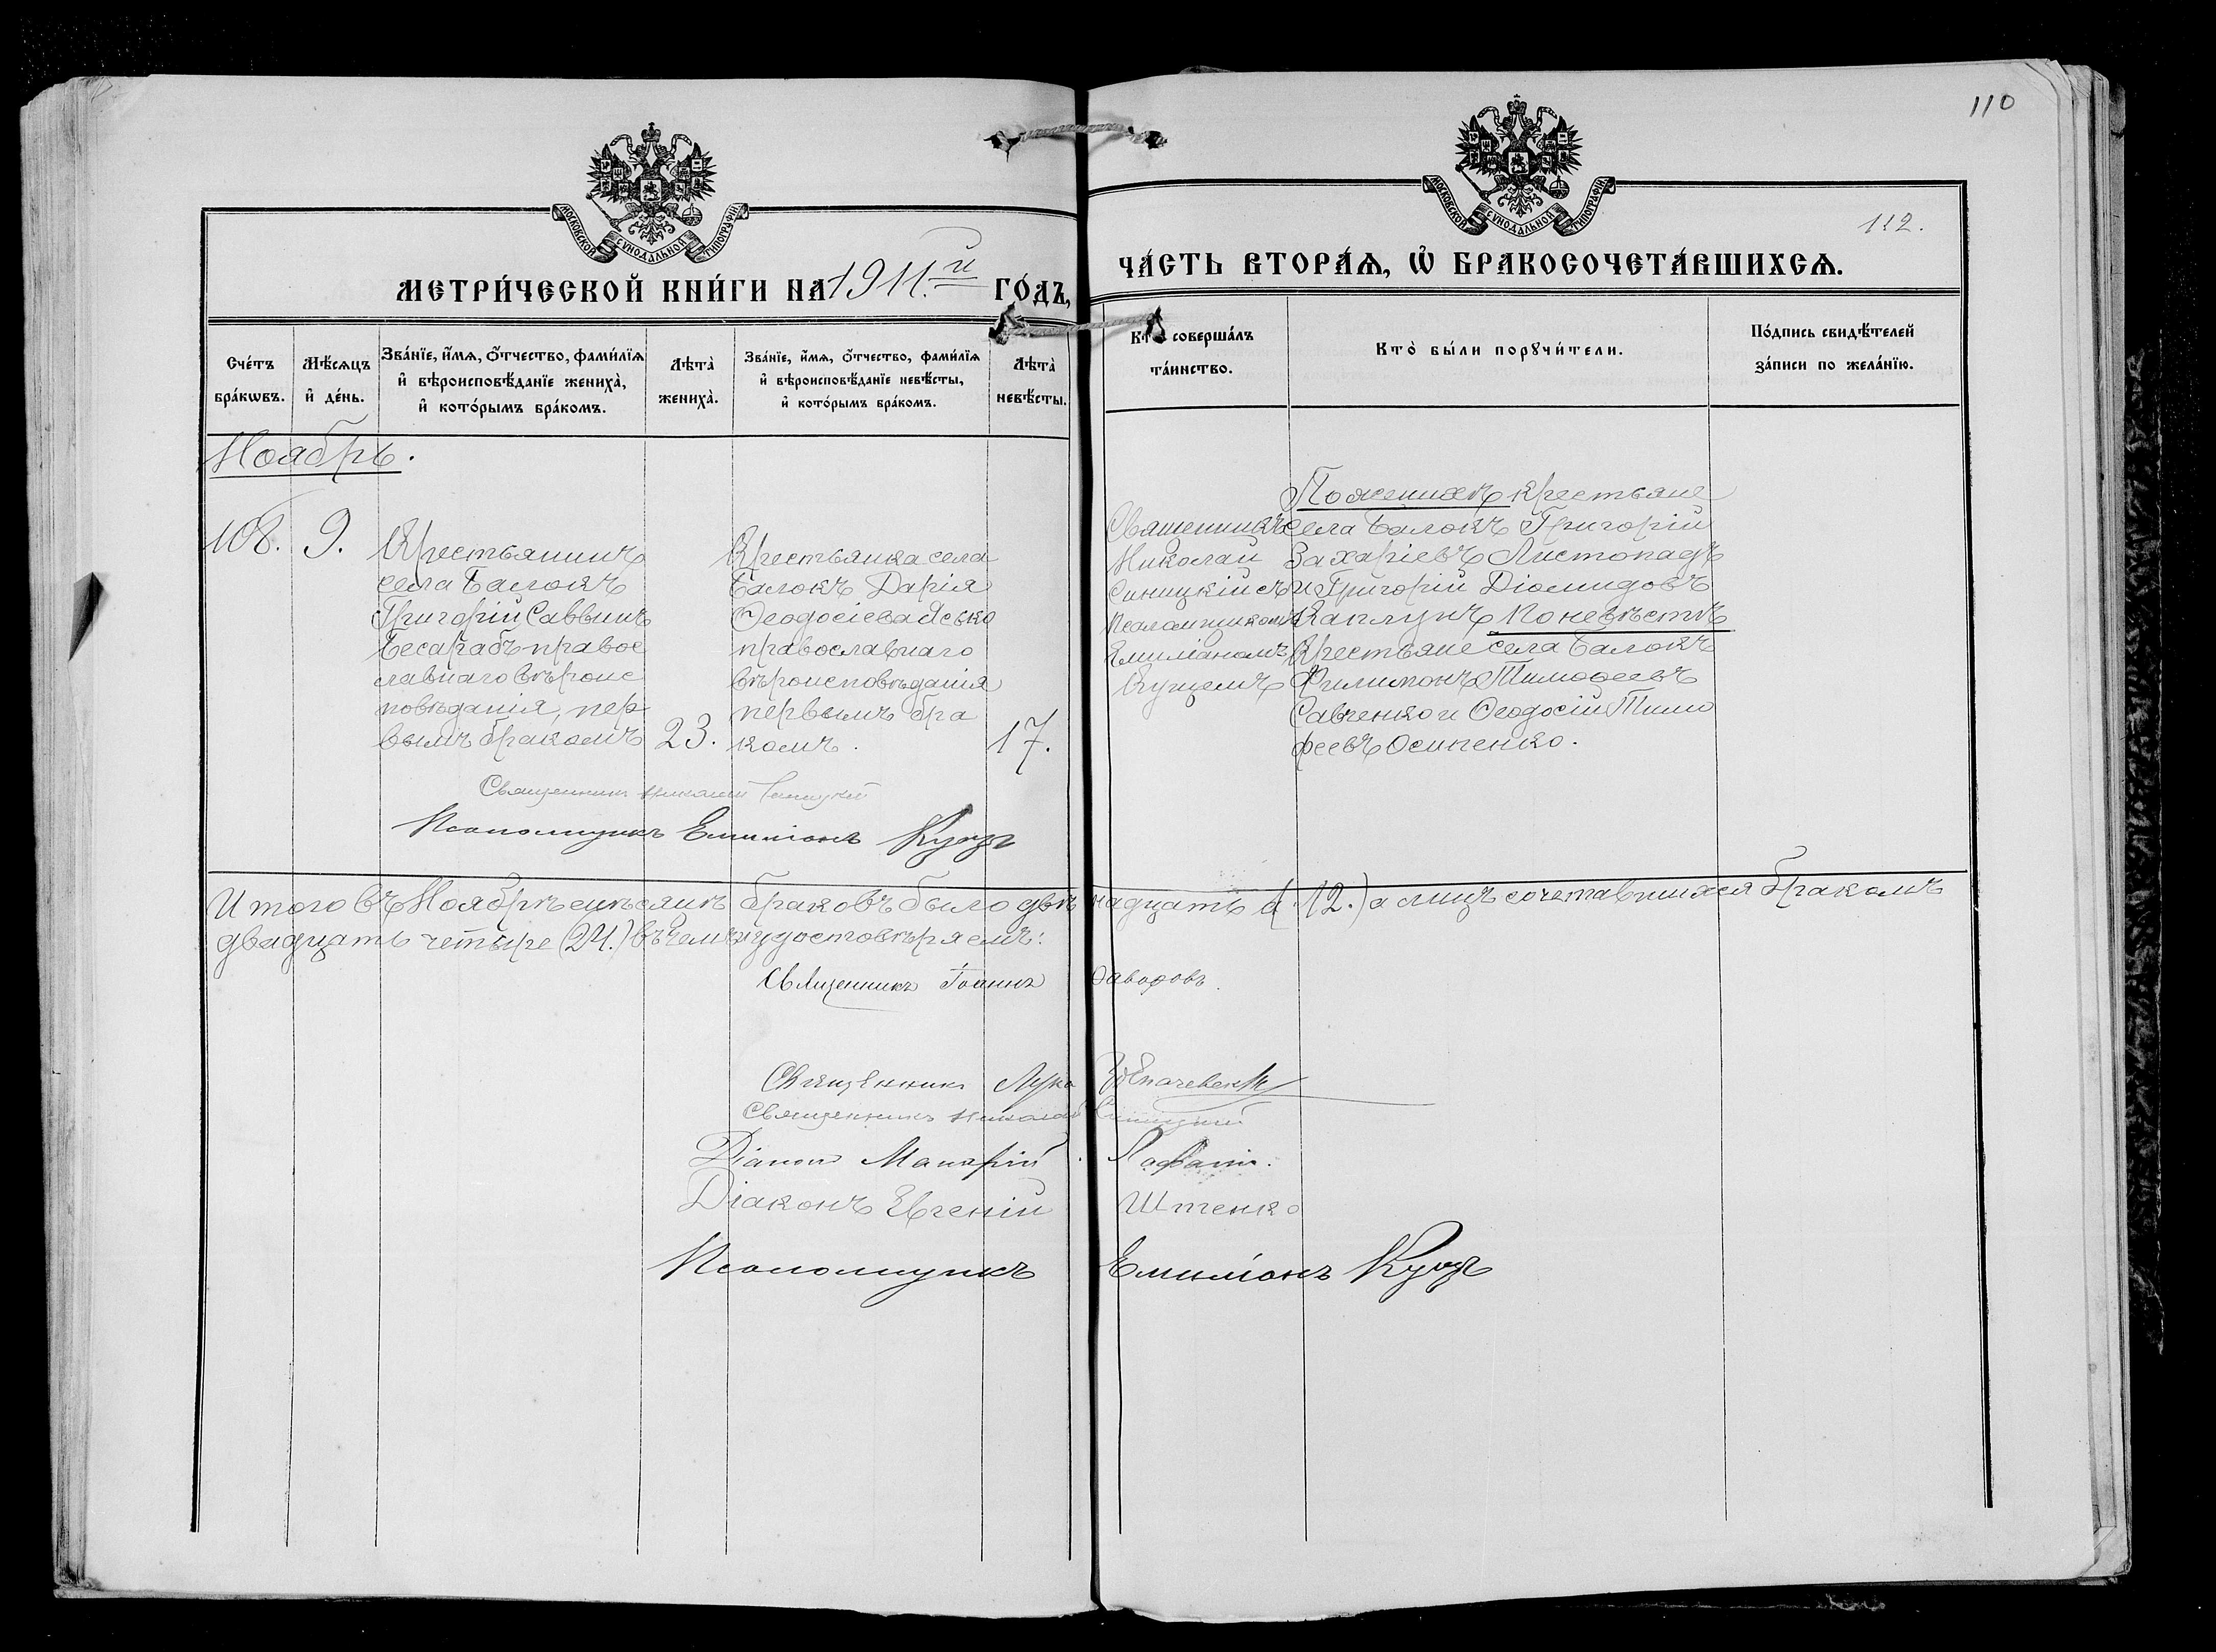 110
112.
МОСКОВСКОЙ СУНОДАЛЬНОЙ ТИПОГРАФІИ.
МОСКОВСКОЙ СУНОДАЛЬНОЙ ТИПОГРАФІИ.
МЕТРИ́ЧЕСКОЙ КНИ́ГИ НА 1911.й ГО́ДЪ,
ЧА́СТЬ ВТОРА́Ѧ, Ѡ҆ БРАКОСОЧЕТА́ВШИХСѦ.
Сче́тъ бра́кѡвъ.
Мѣ́сѧцъ и҆ де́нь.
Зва́нїе, и҆́мѧ, ѻ҆́тчество, фами́лїѧ
и҆ вѣроисповѣ́данїе жениха̀,
и҆ кото́рымъ бра́комъ.
Лѣта̀ жениха̀.
Зва́нїе, и҆́мѧ, ѻ҆́тчество, фами́лїѧ
и҆ вѣроисповѣ́данїе невѣ́сты,
и҆ кото́рымъ бра́комъ.
Лѣта̀ невѣ́сты.
Кто̀ соверша́лъ
та́инство.
Кто̀ бы́ли порꙋчи́тели.
По́дпись свидѣ́телей
за́писи по жела́нїю.
Ноябрь.
108.
9.
Крестьянинъ
села Балокъ
Григорій Саввинъ
Бесарабъ право
славнаго вѣроис
повѣданія, пер
вымъ бракомъ
23.
Крестьянка села
Балокъ Дарія
Ѳеодосіева Ясько
православнаго
вѣроисповѣданія
первымъ бра
комъ.
17.
Священникъ
Николай
Синицкій съ
псаломщикомъ
Емиліаномъ
Куцемъ
По женихѣ крестьяне
села Балокъ Григорій
Захаріевъ Листопадъ
и Григорій Діомидовъ
Каплунъ По невѣстѣ
Крестьяне села Балокъ
Филимонъ Тимоѳеевъ
Савченко и Ѳеодосій Тимо
феевъ Осипенко.
Священникъ Николай Синицкій
Псаломщикъ Емиліанъ Куцъ
Итого въ Ноябрѣ мѣсяцѣ браковъ было двѣнадцать (12.) а лицъ сочетавшихся бракомъ
двадцать четыре (24.) въ чемъ и удостовѣряемъ:
Священникъ Іоаннъ Фаворовъ.
Священникъ Лука
Священникъ Николай Синицкій
Діаконъ Макарій
Діаконъ Евгеній Штенко
Псаломщикъ Емиліанъ Куцъ